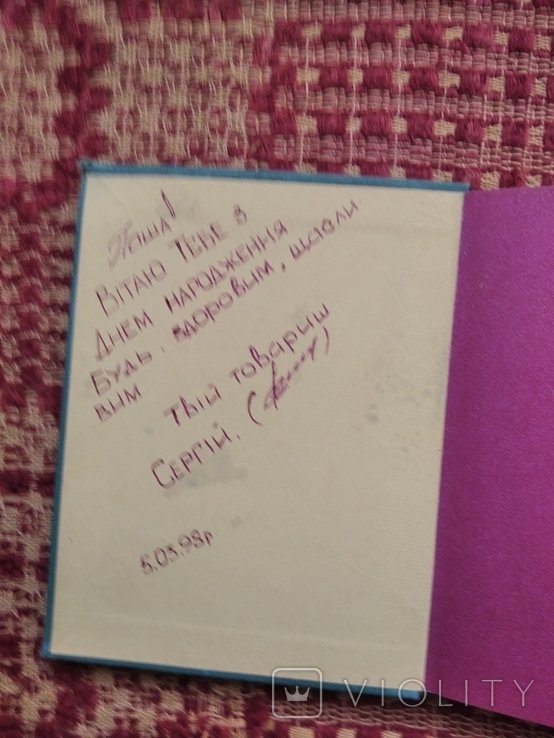 Паша!
Вітаю Тебе з
Днем народження
Будь здоровим, щасли
вим
твій товариш
Сергій. (
5.03.98р
VIOLITY